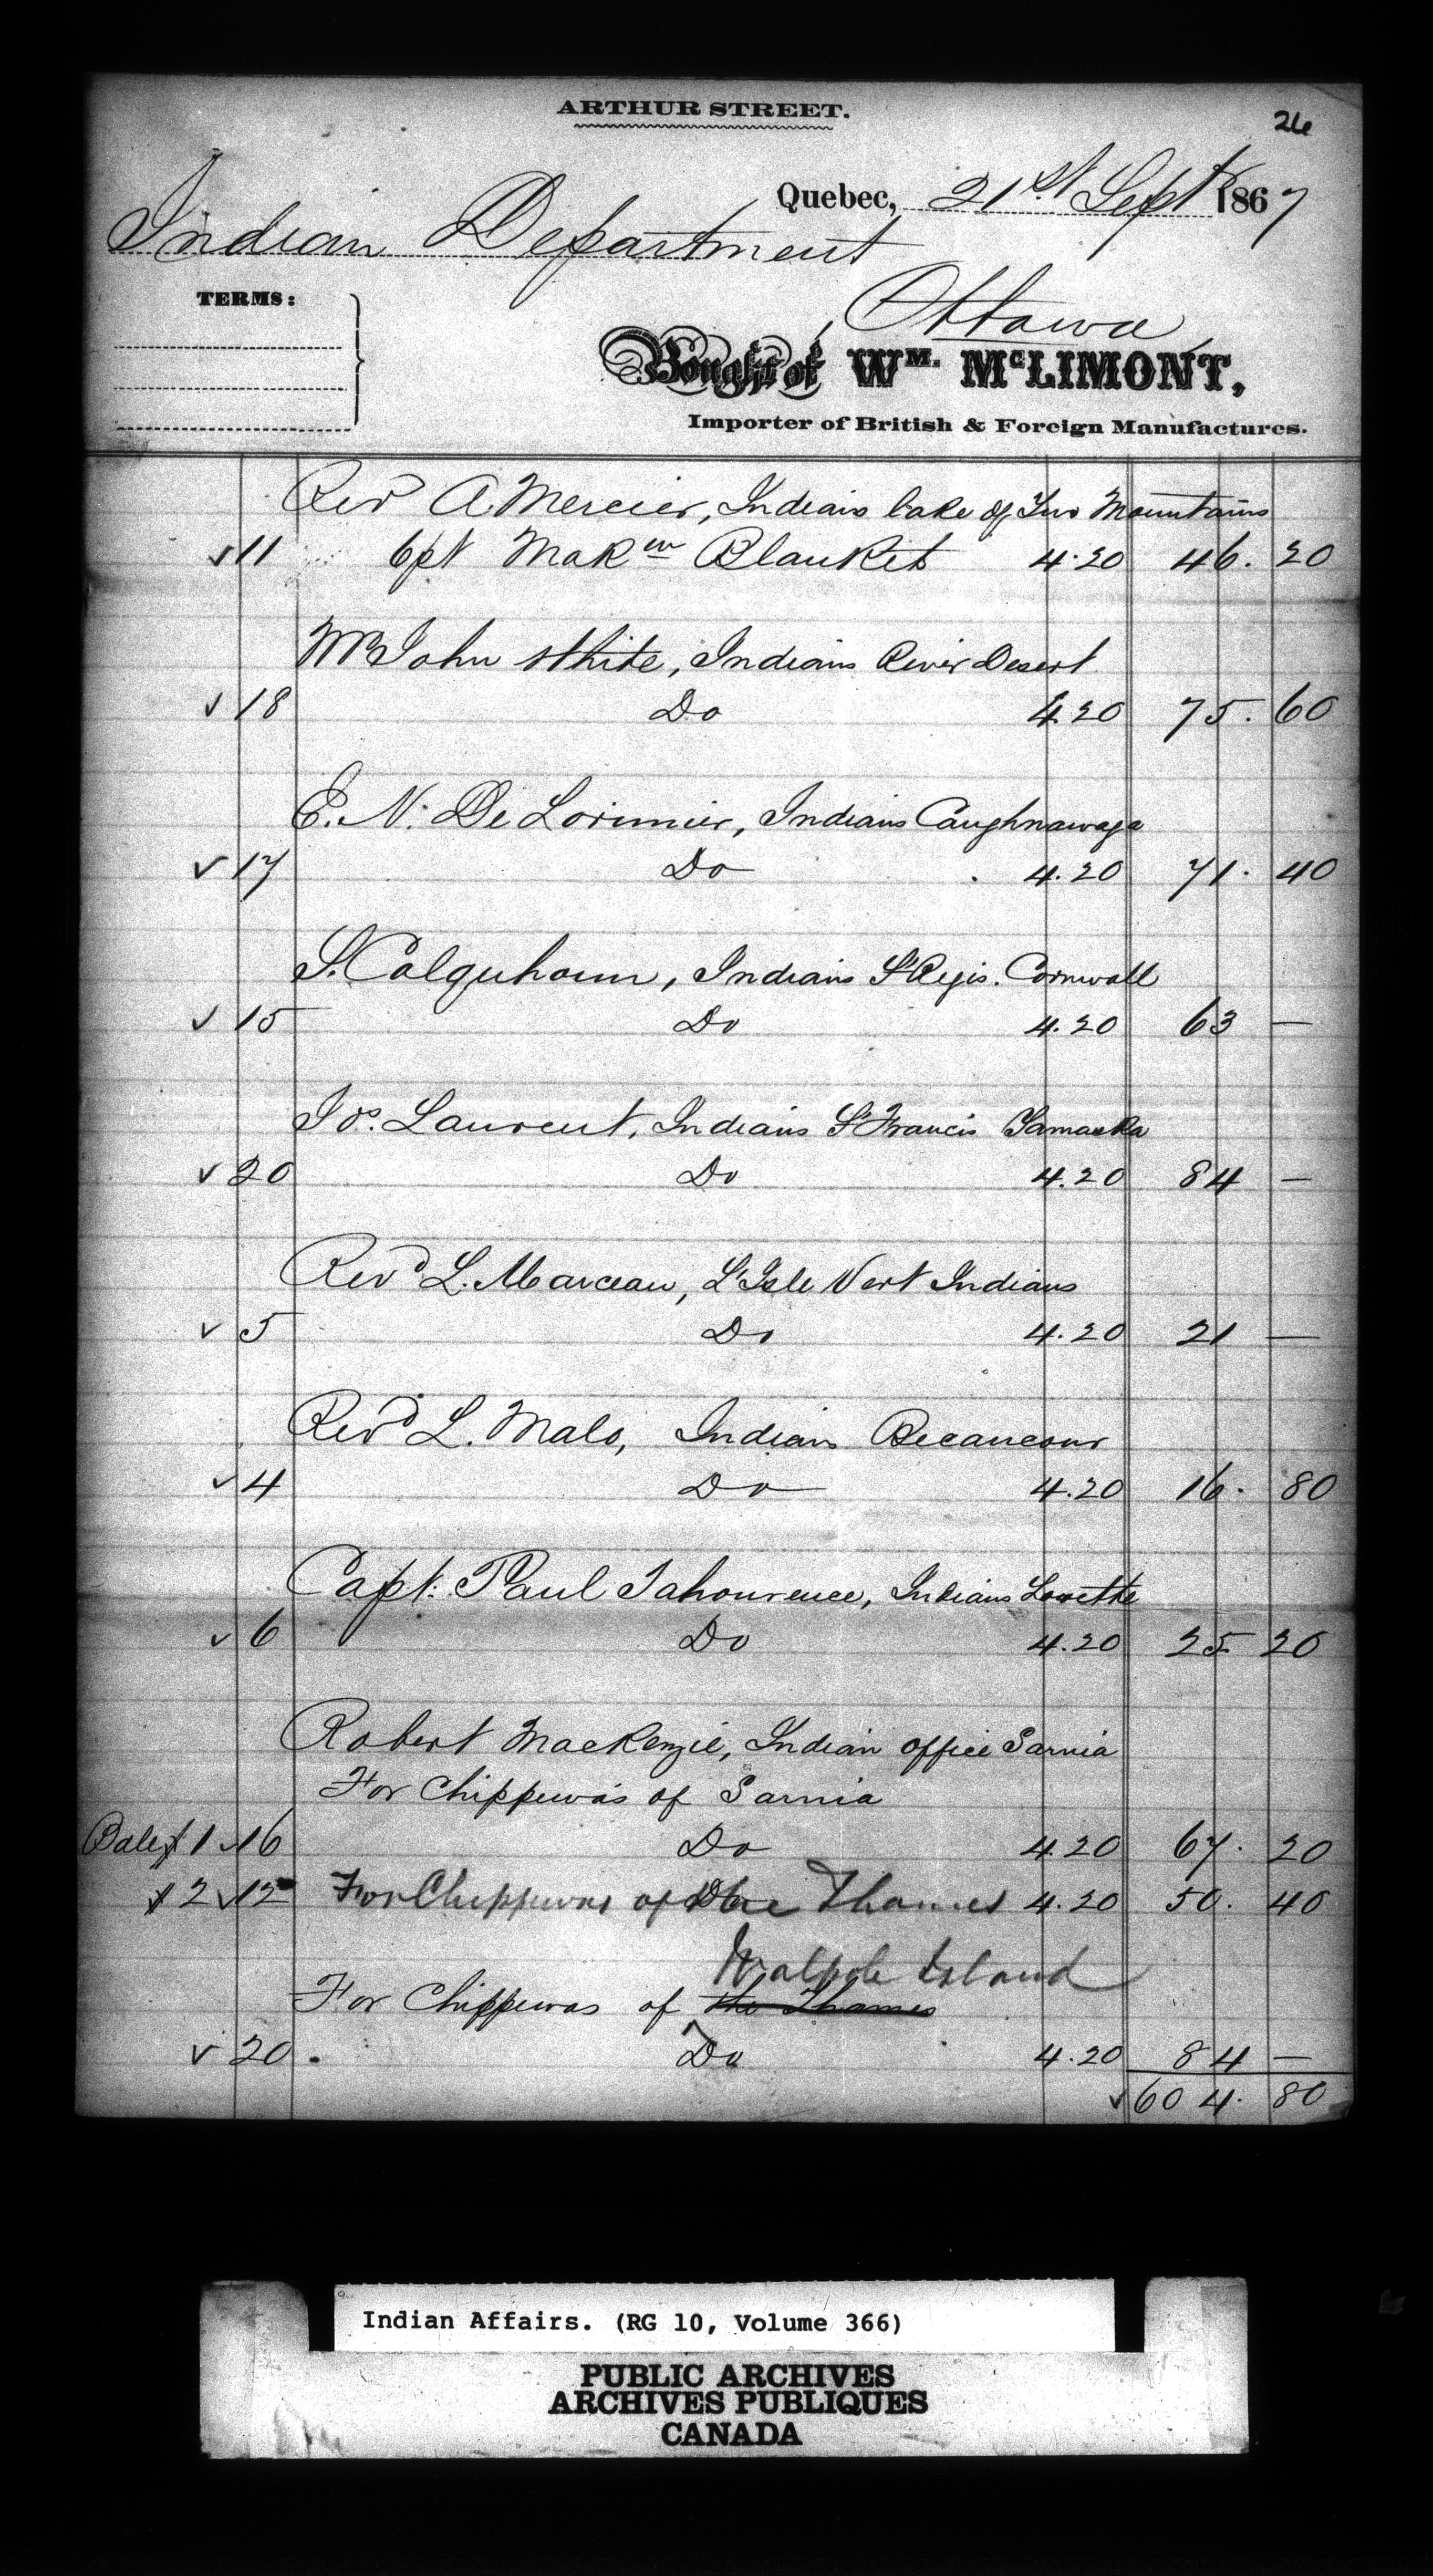 ARTHUR STREET.
26
Quebec, 21st Sept 1867
Indian Department
Ottawa
TERMS:
Bought of WM. McLIMONT,
Importer of British & Foreign Manufactures.
Revd A Mercier, Indians Lake of Two Mountains
✓ 11 6pt Makn Blankets 4.20 46. 20
Mr John White, Indians River Desert
✓ 18 Do 4.20 75. 60
E. N. De Lorimier, Indians Caughnawaga
✓ 17 Do 4.20 71. 40
S. Colquhoun, Indians St Regis. Cornwall
✓ 15 Do 4.20 63 —
Jos. Laurent, Indians St Francis Yamaska
✓ 20 Do 4.20 84 —
Revd L. Marceau, L'Isle Vert Indians
✓ 5 Do 4.20 21 —
Revd L. Malo, Indians Becancour
✓ 4 Do 4.20 16. 80
Capt. Paul Tahourence, Indians Lorette
✓ 6 Do 4.20 25 20
Robert MacKenzie, Indian office Sarnia
For Chippewas of Sarnia
Bale 1 ✓ 16 Do 4.20 67. 20
2 ✓ 12 For Chippewas of the Thames 4.20 50. 40
Walpole Island
For Chippewas of the Thames
✓ 20 Do 4.20 84 —
✓ 604. 80
Indian Affairs. (RG 10, Volume 366)
PUBLIC ARCHIVES
ARCHIVES PUBLIQUES
CANADA